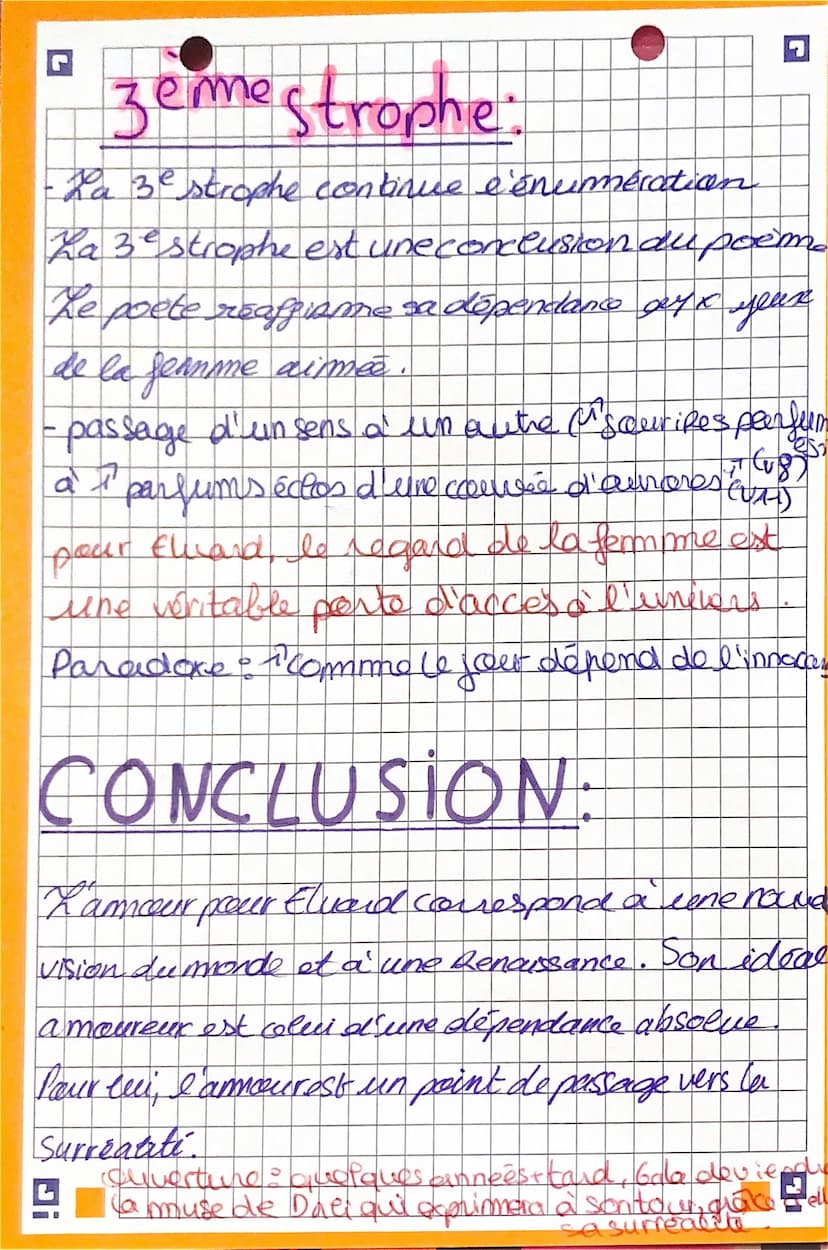 3ème strophe:
- La 3e strophe continue l'énumération
La 3e strophe est une conclusion du poème
Le poète réaffirme sa dépendance aux yeux
de la femme aimée.
- passage d'un sens à un autre ("sourires parfumés"
(v8)
à "parfums éclos d'une couvée d'aurores" (v11)
pour Eluard, le regard de la femme est
une véritable porte d'accès à l'univers.
Paradoxe : "comme le jour dépend de l'innocen
CONCLUSION:
L'amour pour Eluard correspond à une nouv
vision du monde et à une Renaissance. Son idéal
amoureux est celui d'une dépendance absolue.
Pour lui, l'amour est un point de passage vers la
surréalité.
ouverture : quelques années + tard, Gala deviend
la muse de Dali qui exprimera à son tour, grâce à ell
sa surréalité.